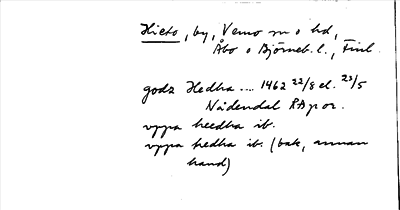 Hieto, by, Vemo sn o hd,
Åbo o Björneb. l., Finl.
godz Hedha ... 1462 22/8 el. 23/5
Nådendal RAp or.
vppa heedha ib.
vppa hedha ib. (bak, annan
hand)